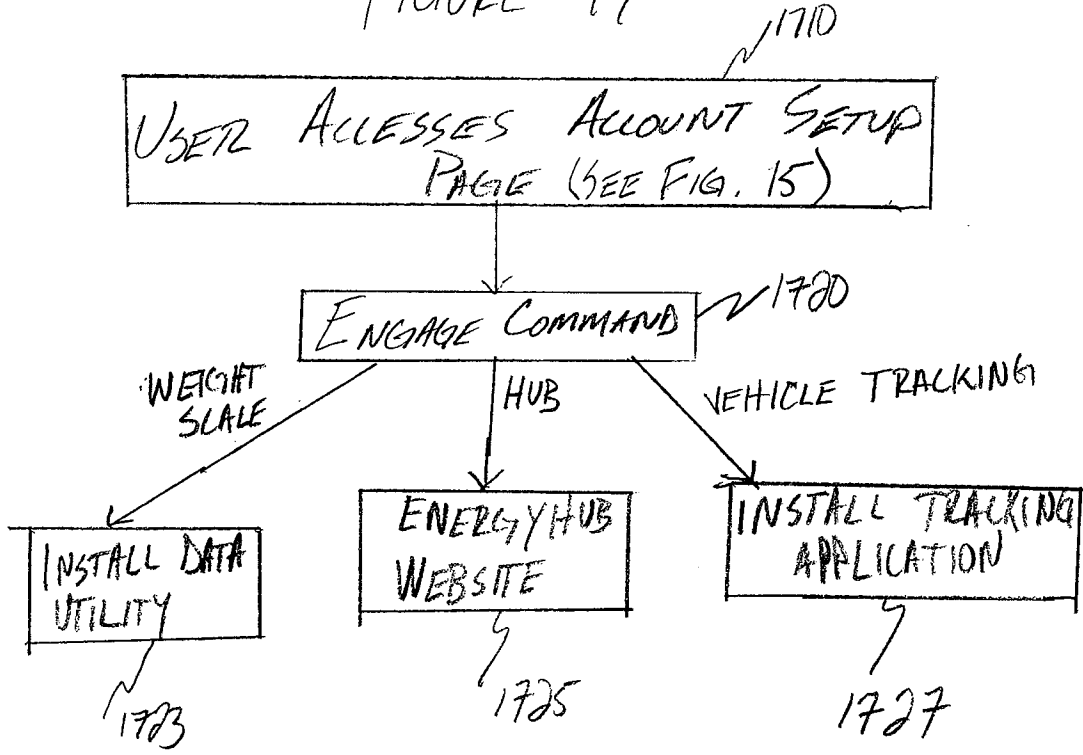 FIGURE 17
1710
USER ACCESSES ACCOUNT SETUP
PAGE (SEE FIG. 15)
ENGAGE COMMAND
1720
WEIGHT
SCALE
HUB
VEHICLE TRACKING
INSTALL DATA
UTILITY
ENERGYHUB
WEBSITE
INSTALL TRACKING
APPLICATION
1723
1725
1727